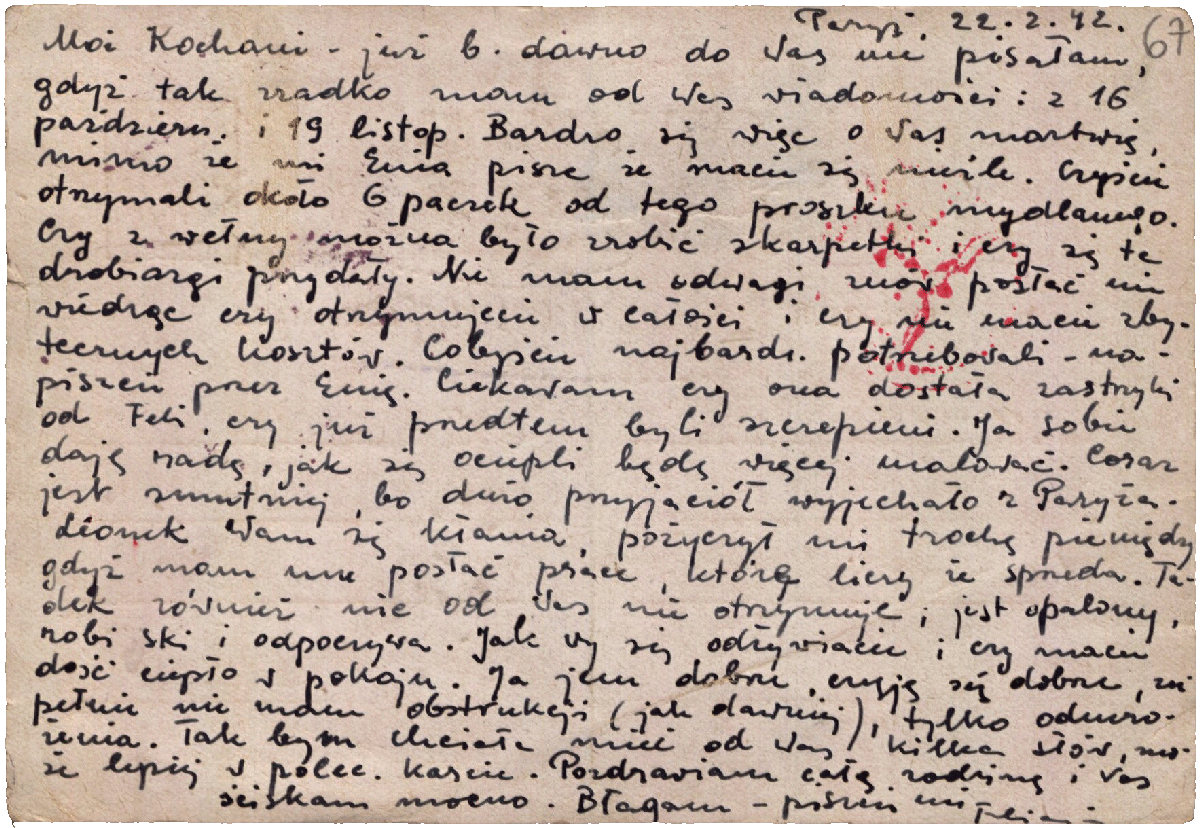 Paryż, 22.2.42.
67
Moi Kochani - już b. dawno do Was nie pisałam,
gdyż tak rzadko mam od Was wiadomości: z 16
październ. i 19 listop. Bardzo się więc o Was martwię,
mimo że mi Enia pisze że macie się nieźle. Czyście
otrzymali około 6 paczek od tego proszku mydlanego.
Czy z wełny można było zrobić skarpetki i czy się te
drobiazgi przydały. Nie mam odwagi znów posłać nie
wiedząc czy otrzymujecie w całości i czy nie macie zby-
tecznych kosztów. Cobyście najbardz. potrzebowali - na-
piszcie przez Enię. Ciekawam czy ona dostała zastrzyki
od Feli, czy już przedtem byli szczepieni. Ja sobie
daję radę, jak się ociepli będę więcej malować. Coraz
jest smutniej, bo dużo przyjaciół wyjechało z Paryża.
Lionek Wam się kłania, pożyczył mi trochę pieniędzy
gdyż mam mu posłać prace, którą liczy że sprzeda. Ta-
dek również nic od Was nie otrzymuje, jest opalony,
robi ski i odpoczywa. Jak wy się odżywiacie i czy macie
dość ciepło w pokoju. Ja jem dobrze, czuję się dobrze, zu-
pełnie nie mam obstrukcji (jak dawniej), tylko odmro-
żenia. Tak bym chciała mieć od Was kilka słów, mo-
że lepiej w polec. karcie. Pozdrawiam całą rodzinę i Was
ściskam mocno. Błagam - piszcie mi